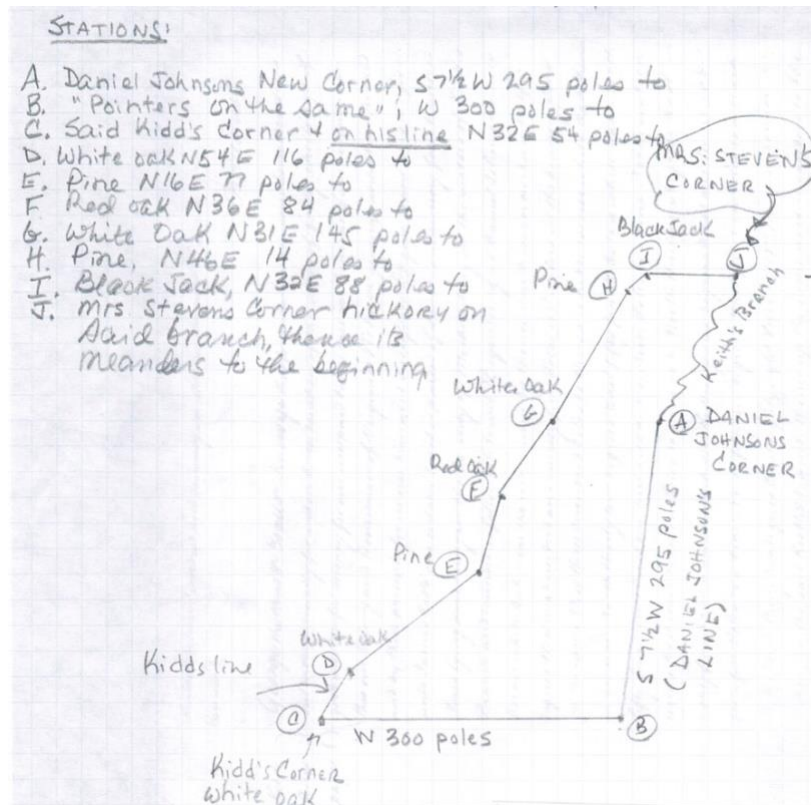 STATIONS:
A. Daniel Johnsons New Corner, S 7½ W 295 poles to
B. "Pointers on the same", W 300 poles to
C. Said Kidd's Corner + on his line N32E 54 poles to
D. White oak N54E 116 poles to
E. Pine N16E 77 poles to
F Red oak N36E 84 poles to
G. White Oak N31E 145 poles to
H. Pine, N46E 14 poles to
I. Black Jack, N32E 88 poles to
J. Mrs Stevens Corner hickory on
said branch, thence its
meanders to the beginning
MRS. STEVENS
CORNER
Black Jack
I
J
Pine
H
Keith's Branch
White Oak
G
A DANIEL
JOHNSONS
CORNER
Red Oak
F
S 7½ W 295 poles
(DANIEL JOHNSON'S
LINE)
Pine E
White oak
D
Kidds line
C
B
W 300 poles
Kidd's Corner
White oak